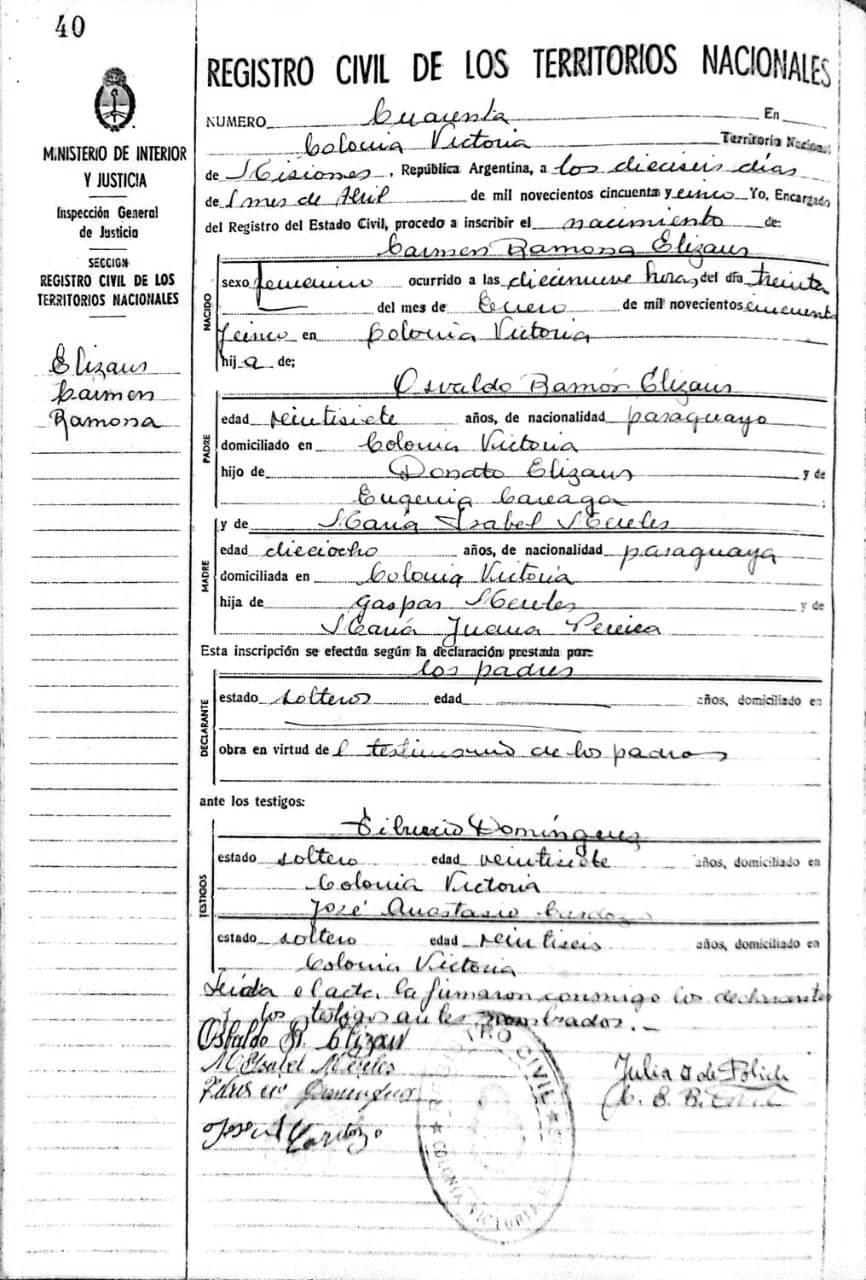 40
MINISTERIO DE INTERIOR
Y JUSTICIA
Inspección General
de Justicia
SECCION
REGISTRO CIVIL DE LOS
TERRITORIOS NACIONALES
Elizaur
Carmen
Ramona
REGISTRO CIVIL DE LOS TERRITORIOS NACIONALES
NUMERO Cuarenta En
Colonia Victoria Territorio Nacional
de Misiones, República Argentina, a los dieciseis días
del mes de Abril de mil novecientos cincuenta y cinco Yo, Encargado
del Registro del Estado Civil, procedo a inscribir el nacimiento de:
Carmen Ramona Elizaur
NACIDO
sexo femenino ocurrido a las diecinueve horas del día treinta
del mes de Enero de mil novecientos cincuenta
y cinco en Colonia Victoria
hija de:
Osvaldo Ramón Elizaur
PADRE
edad veintisiete años, de nacionalidad paraguayo
domiciliado en Colonia Victoria
hijo de Donato Elizaur y de
Eugenia Careaga ;
y de María Isabel Mereles
MADRE
edad dieciocho años, de nacionalidad paraguaya
domiciliada en Colonia Victoria
hija de Gaspar Mereles y de
María Juana Pereira
Esta inscripción se efectúa según la declaración prestada por:
los padres
DECLARANTE
estado solteros edad años, domiciliado en
obra en virtud del testimonio de los padres
ante los testigos:
Tiburcio Domínguez
TESTIGOS
estado soltero edad veintisiete años, domiciliado en
Colonia Victoria
José Anastasio Cardozo
estado soltero edad veintiseis años, domiciliado en
Colonia Victoria
Leída el acta, la firmaron conmigo los declarantes
y los testigos antes nombrados.—
Osbaldo R. Elizaur
M. Isabel Mereles
Dominguez
José A. Cardozo
Julia de
REGISTRO CIVIL
COLONIA VICTORIA